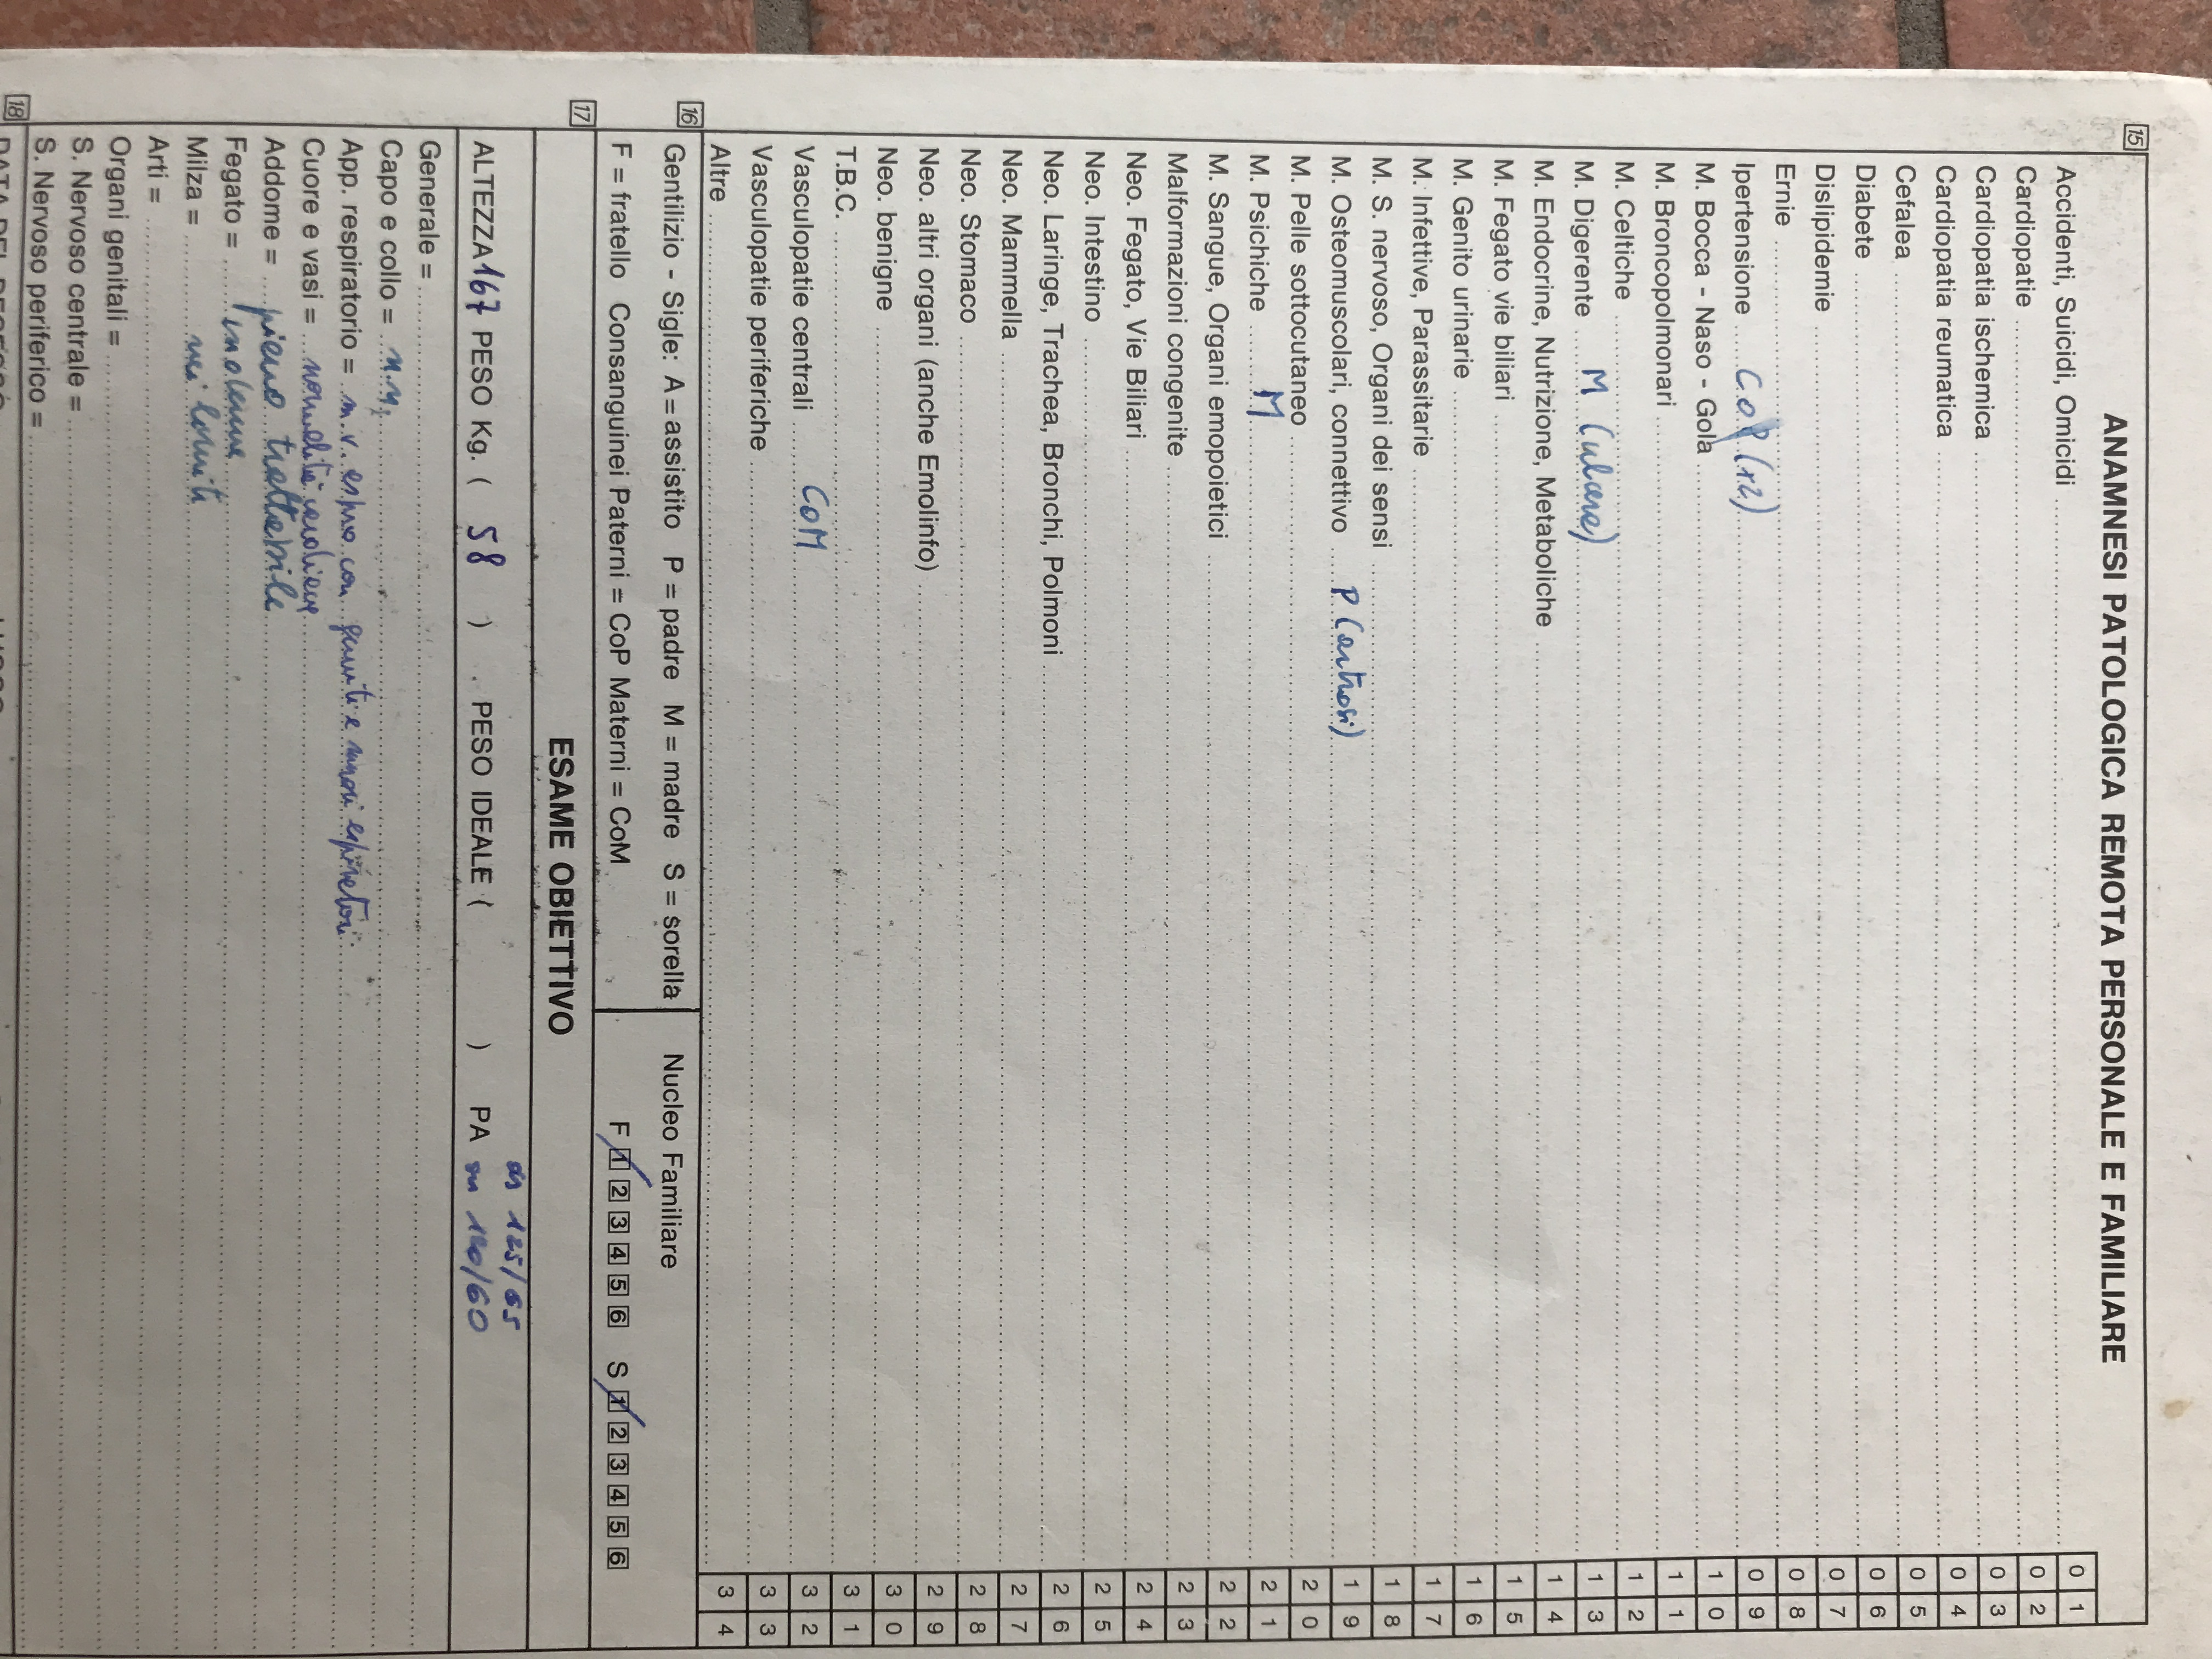 15
ANAMNESI PATOLOGICA REMOTA PERSONALE E FAMILIARE
Accidenti, Suicidi, Omicidi 0 1
Cardiopatie 0 2
Cardiopatia ischemica 0 3
Cardiopatia reumatica 0 4
Cefalea 0 5
Diabete 0 6
Dislipidemie 0 7
Ernie 0 8
Ipertensione CoP (+2) 0 9
M. Bocca - Naso - Gola 1 0
M. Broncopolmonari 1 1
M. Celtiche 1 2
M. Digerente M (ulcere) 1 3
M. Endocrine, Nutrizione, Metaboliche 1 4
M. Fegato vie biliari 1 5
M. Genito urinarie 1 6
M. Infettive, Parassitarie 1 7
M. S. nervoso, Organi dei sensi 1 8
M. Osteomuscolari, connettivo P (artrosi) 1 9
M. Pelle sottocutaneo 2 0
M. Psichiche M 2 1
M. Sangue, Organi emopoietici 2 2
Malformazioni congenite 2 3
Neo. Fegato, Vie Biliari 2 4
Neo. Intestino 2 5
Neo. Laringe, Trachea, Bronchi, Polmoni 2 6
Neo. Mammella 2 7
Neo. Stomaco 2 8
Neo. altri organi (anche Emolinfo) 2 9
Neo. benigne 3 0
T.B.C. 3 1
Vasculopatie centrali CoM 3 2
Vasculopatie periferiche 3 3
Altre 3 4
16
Gentilizio - Sigle: A = assistito P = padre M = madre S = sorella Nucleo Familiare
F = fratello Consanguinei Paterni = CoP Materni = CoM F 1 2 3 4 5 6 S 1 2 3 4 5 6
17
ESAME OBIETTIVO
125/65
ALTEZZA 167 PESO Kg. ( 58 ) PESO IDEALE ( ) PA 110/60
Generale =
Capo e collo = n.n.
App. respiratorio = m.v. espro con gemiti e espiratori
Cuore e vasi =
Addome = piano trattabile
Fegato = indenne
Milza = nei limiti
Arti =
Organi genitali =
S. Nervoso centrale =
S. Nervoso periferico =
18